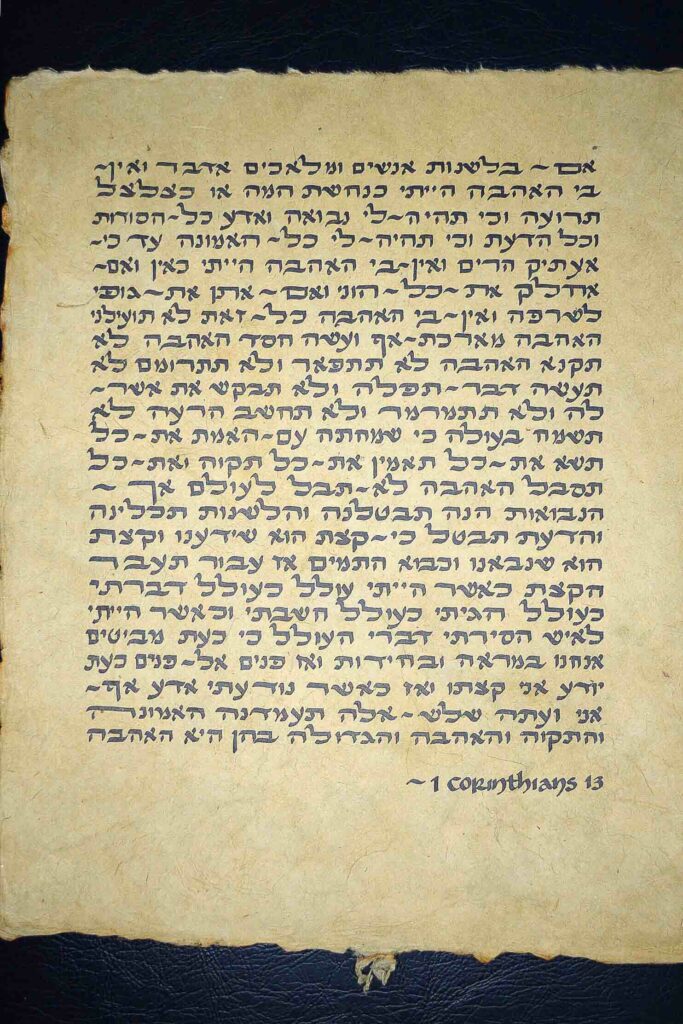 אם~ בלשנות אנשים ומלאכים אדבר ואין~
בי האהבה הייתי כנחשת המה או כצלצל
תרועה וכי תהיה~לי נבואה ואדע כל~הסודות
וכל הדעת וכי תהיה~לי כל~ האמונה עד כי~
אעתיק הרים ואין~בי האהבה הייתי כאין ואם~
אחלק את~כל~ הוני ואם~ אתן את~גופי
לשרפה ואין~בי האהבה כל~זאת לא תועילני
האהבה מארכת~אף ועשה חסד האהבה לא
תקנא האהבה לא תתפאר ולא תתרומם לא
תעשה דבר~תפלה ולא תבקש את אשר~
לה ולא תתמרמר ולא תחשב הרעה לא
תשמח בעולה כי שמחתה עם~האמת את~כל
תשא את~כל תאמין את~כל תקוה ואת~כל
תסבל האהבה לא~תבל לעולם אך ~
הנבואות הנה תבטלנה והלשנות תכלינה
והדעת תבטל כי~קצת הוא שידענו וקצת
הוא שנבאנו וכבוא התמים אז עבור תעבר
הקצת כאשר הייתי עולל כעולל דברתי
כעולל הגיתי כעולל חשבתי וכאשר הייתי
לאיש הסירתי דברי העולל כי כעת מביטים
אנחנו במראה ובחידות ואז פנים אל~פנים כעת
יודע אני קצתו ואז כאשר נודעתי אדע אף~
אני ועתה שלש~אלה תעמדנה האמונה
והתקוה והאהבה והגדולה בהן היא האהבה
~1 Corinthians 13